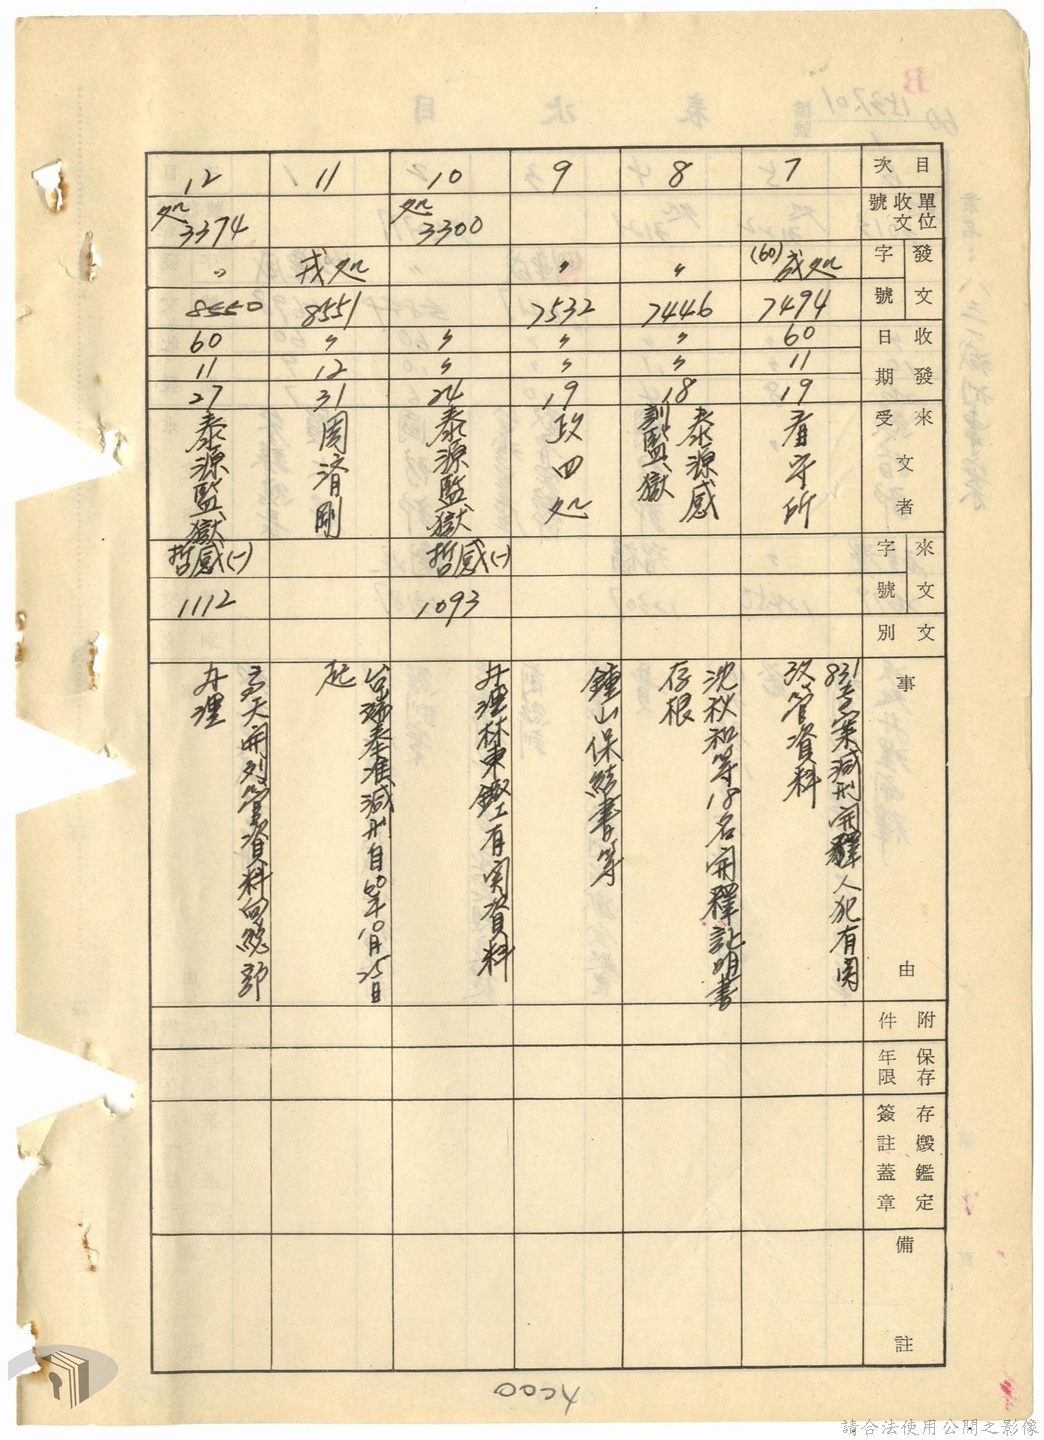 目次
單位收文號
發文
字
號
收發日期
來文受文者
來文
字
號
文別
事由
附件
保存年限
存燬鑑定
簽註蓋章
備註
7
(60)
処
7494
60
11
19
看守所
831專案減刑開釋人犯有関
放管資料
8
〃
7446
〃
〃
18
泰源感
訓監獄
沈秋和等18名開釋証明書
存根
9
〃
7532
〃
〃
19
政四処
鍾山保結書等
10
処
3300
〃
〃
24
泰源監獄
哲感(一)
1093
弁理林東鏗工有関資料
11
戎処
8551
〃
12
31
周済剛
台端奉准減刑自60年10月25日
起
12
処
3374
〃
8550
60
11
27
泰源監獄
哲感(一)
1112
天開列管資料向總部
弁理
請合法使用公開之影像